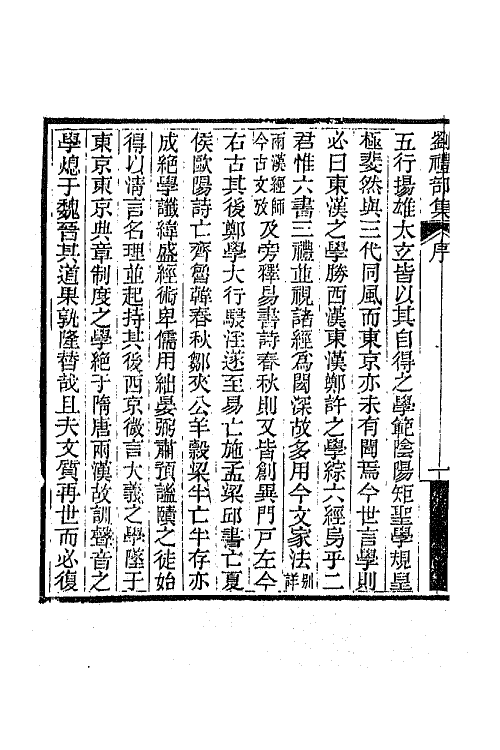 劉禮部集 序 一
五行揚雄太玄皆以其自得之學範陰陽矩聖學規皇
極斐然與三代同風而東京亦未有聞焉今世言學則
必曰東漢之學勝西漢東漢鄭許之學綜六經烏乎二
君惟六書三禮並視諸經爲閎深故多用今文家法別詳
兩漢經師今古文攷及旁釋易書詩春秋則又皆創異門戸左今
右古其後鄭學大行駸淫遂至易亡施孟梁邱書亡夏
侯歐陽詩亡齊魯韓春秋鄒夾公羊穀梁半亡半存亦
成絶學讖緯盛經術卑儒用絀晏弼肅預謐賾之徒始
得以淸言名理並起持其後西京微言大義之學墜于
東京東京典章制度之學絶于隋唐兩漢故訓聲音之
學熄于魏晉其道果孰隆替哉且夫文質再世而必復